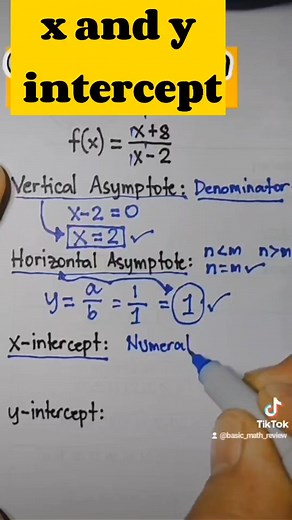 x and y
intercept
f(x) = x+8 / x-2
Vertical Asymptote: Denominator
x-2=0
x=2 ✓
Horizontal Asymptote: n<m n>m
n=m ✓
y = a/b = 1/1 = 1 ✓
x-intercept: Numeral
y-intercept:
TikTok
@basic_math_review